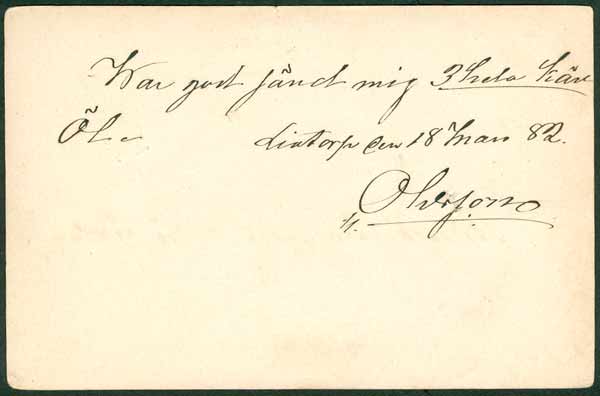 War god sänd mig 3 hela Kär
Öl.
Liatorp den 18 Mars 82.